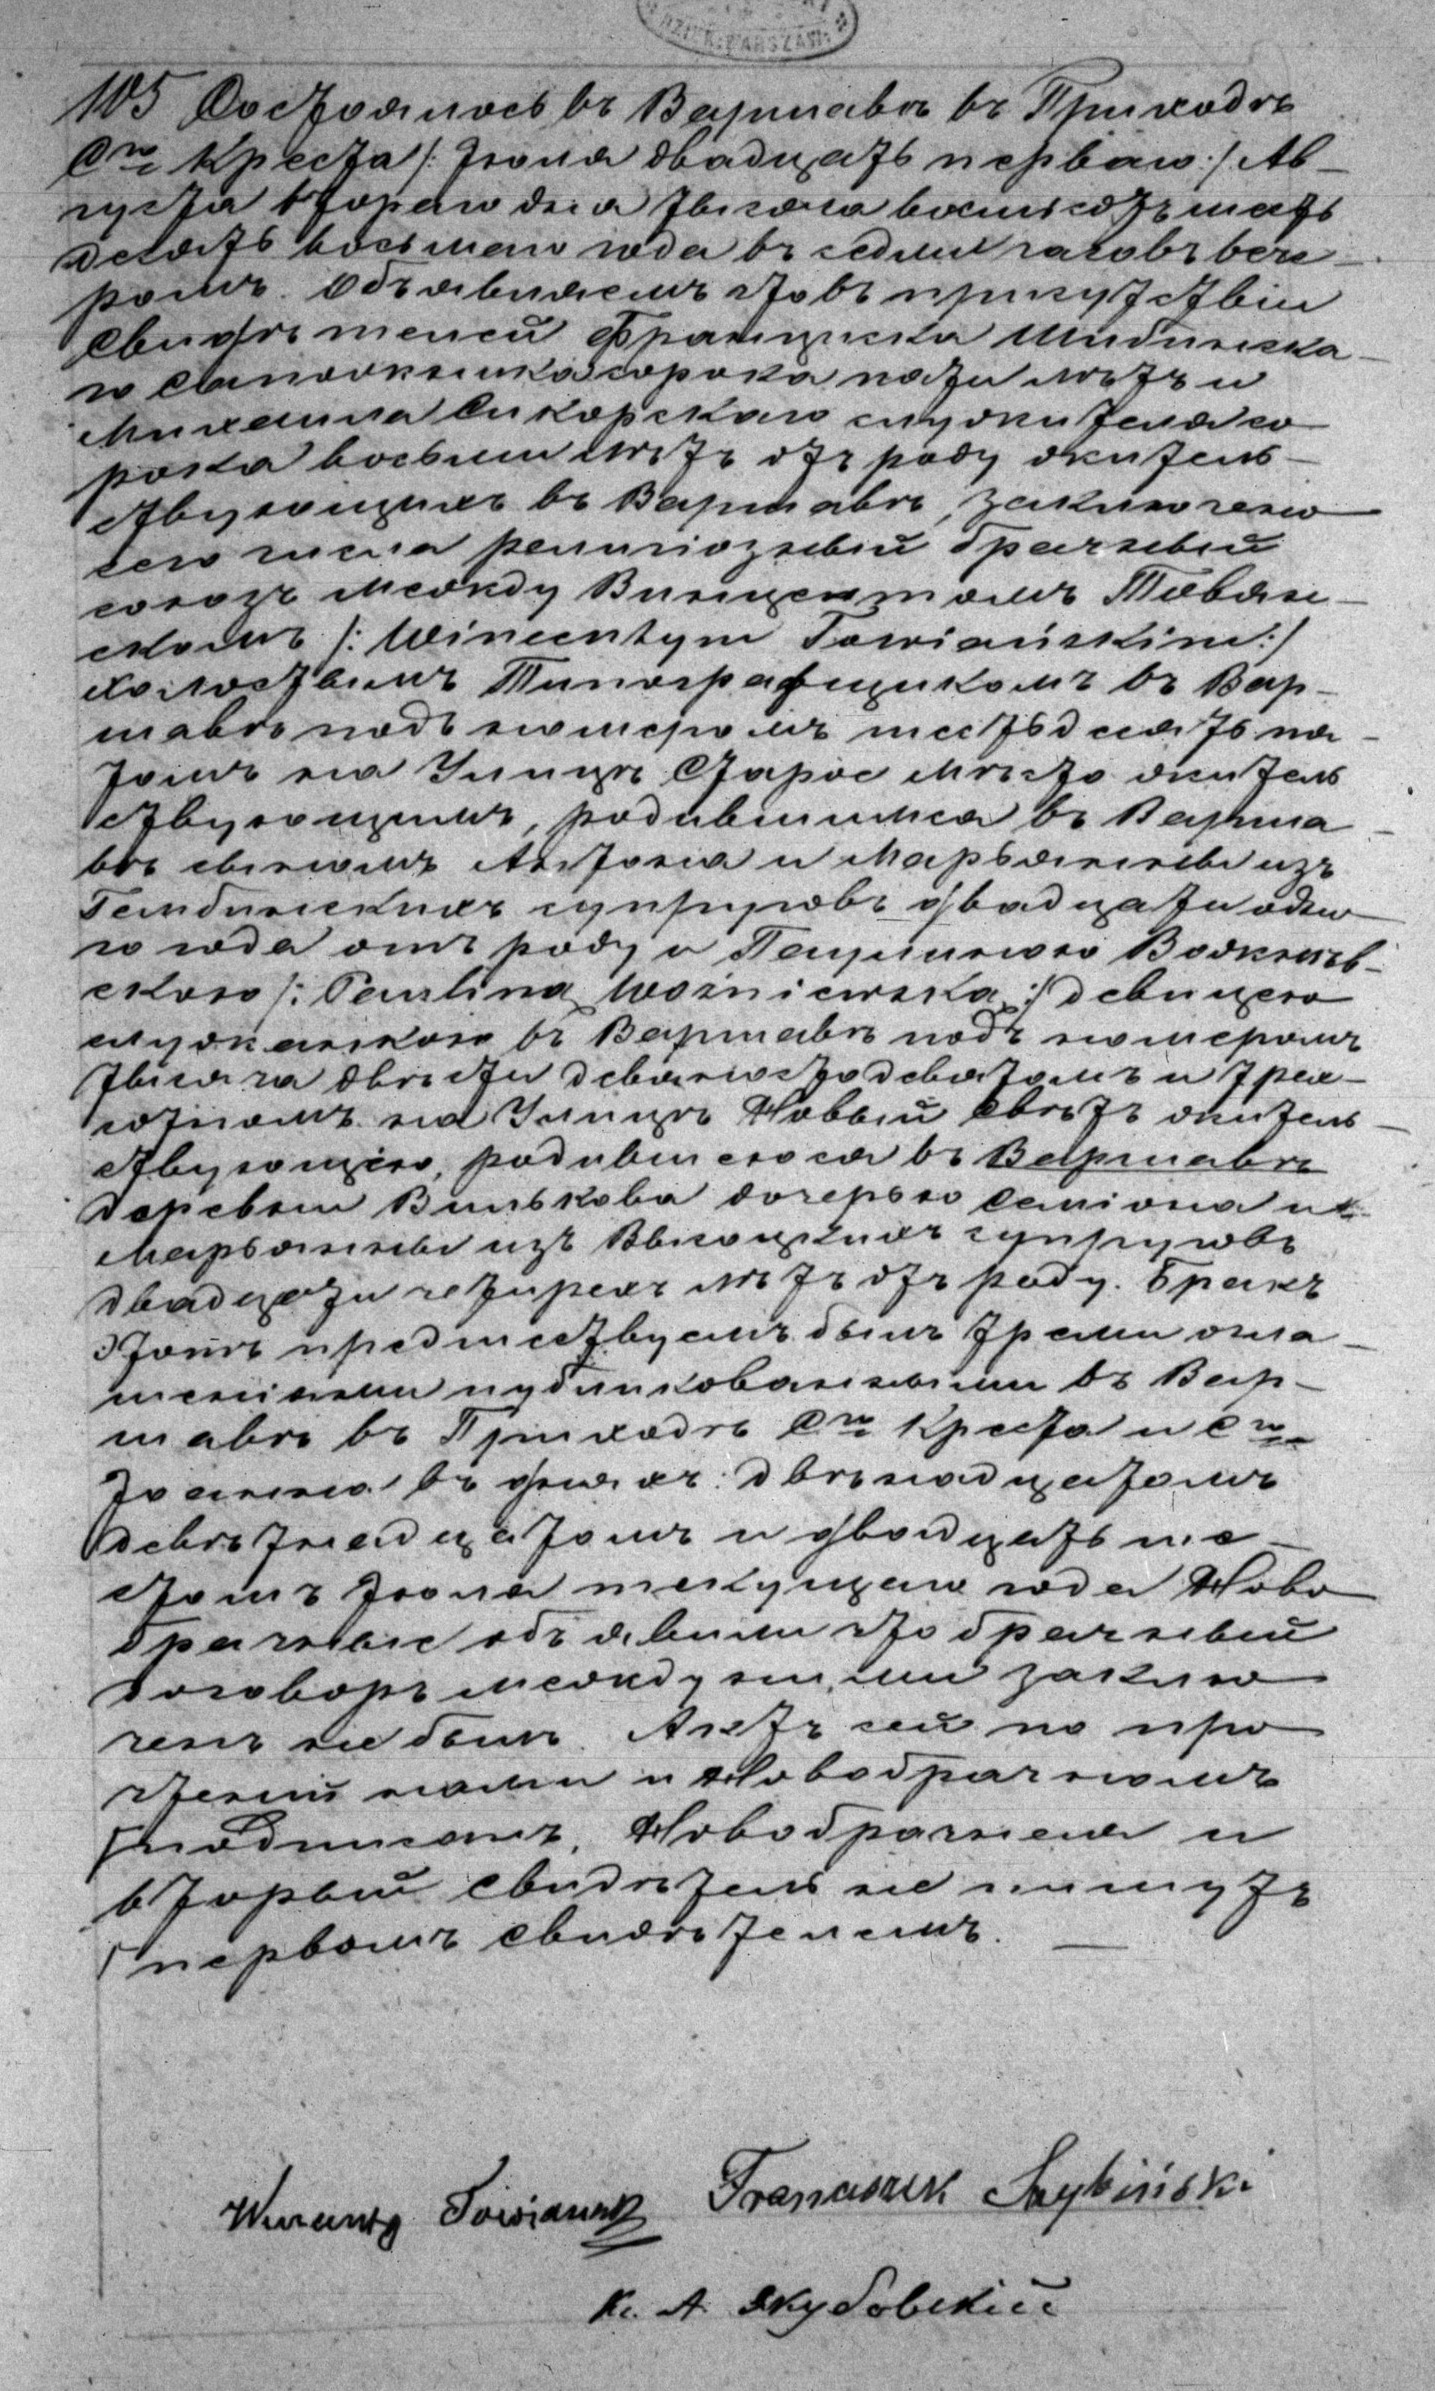 DZIEK. WARSZAW.
105 Состоялось въ Варшавѣ въ Приходѣ
Сто Креста /: Іюля двадцать перваго :/ Ав-
густа втораго дня тысяча восемьсотъ шесть
десятъ восьмаго года въ седмы часовъ вече-
ромъ. Объявляемъ что въ присутствіи
Свидѣтелей Францишка Шибинска-
го Сапожника сорока пяти лѣтъ и
Михаила Сикорскаго служителя со-
рока восьми лѣтъ отъ роду житель-
ствующихъ въ Варшавѣ, заключено
сего числа религіозный брачный
союзъ между Винцентомъ Товян-
скомъ /: Wincentym Towiańskim :/
холостымъ Типографщикомъ въ Вар-
шавѣ подъ номеромъ шестьдесятъ пя-
томъ на Улицѣ Старое Мѣсто житель
ствующимъ, родившимся въ Варша-
вѣ сыномъ Антона и Марьянны изъ
Гембинскихъ супруговъ двадцати одно
го года отъ роду и Паулиною Вожнев-
скою /: Paulina Woźniewska :/ девицею
служанкою въ Варшавѣ подъ номеромъ
тысяча двѣсти девяностодевятомъ и трех-
сотномъ на Улицѣ Новый Свѣтъ житель-
ствующею, родившеюся въ Варшавѣ
деревни Вилькова дочерью Саміона и
Марьянны изъ Высоцкихъ супруговъ
двадцати четырехъ лѣтъ отъ роду. Бракъ
этомъ предшествуемъ былъ тремя огла-
шеніями публикованными въ Вар-
шавѣ въ Приходѣ Сто Креста и Сто
Іоанна въ дняхъ: двѣнадцатомъ
девѣтнадцатомъ и двадцать ше-
стомъ Іюля текущаго года Ново
брачные объявили что брачный
договоръ между ними заклю
ченъ не былъ. Актъ сей по про
чтеніи нами и Новобрачномъ
подписанъ, Новобрачная и
вторый свидѣтель не пишутъ
первомъ свидѣтелемъ.
Wincenty Towiański Franciszek Szybiński
К. А. Якубовскій